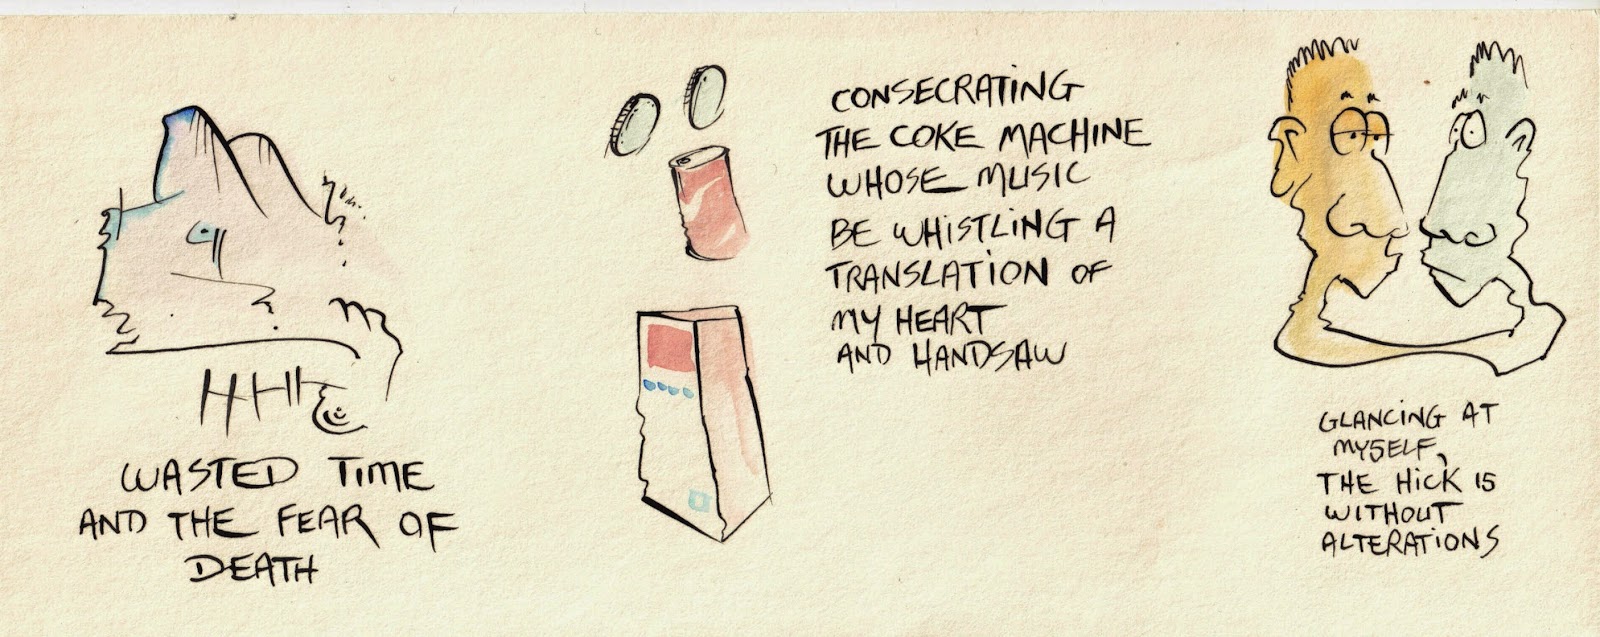 WASTED TIME
AND THE FEAR OF
DEATH
CONSECRATING
THE COKE MACHINE
WHOSE MUSIC
BE WHISTLING A
TRANSLATION OF
MY HEART
AND HANDSAW
GLANCING AT
MYSELF,
THE HICK IS
WITHOUT
ALTERATIONS